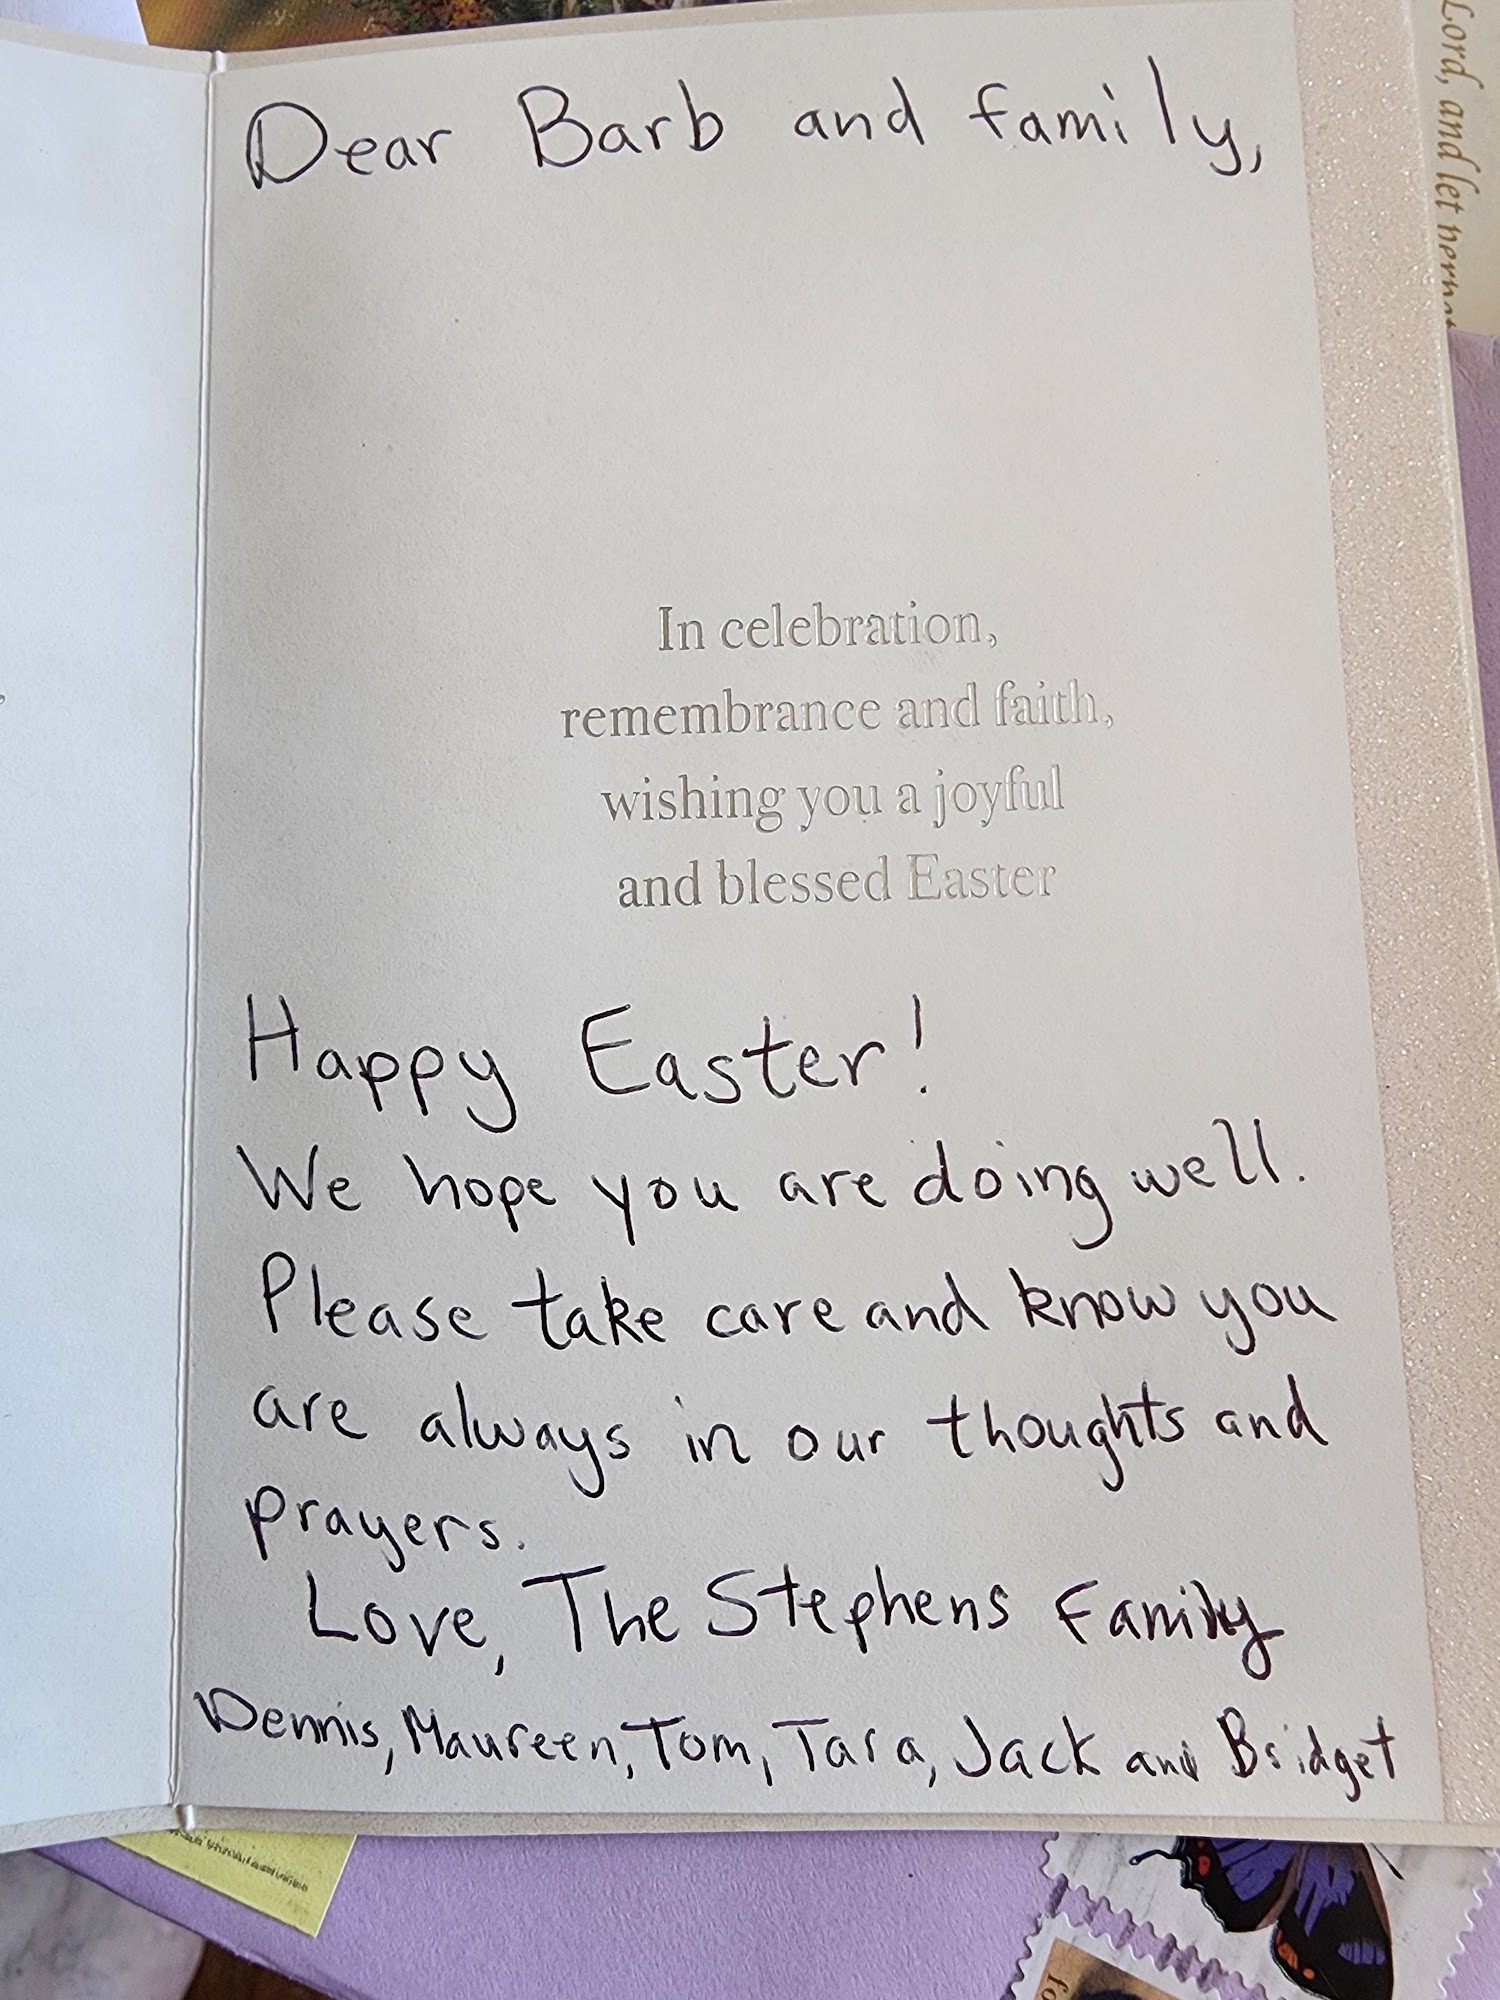 Dear Barb and family,
In celebration,
remembrance and faith,
wishing you a joyful
and blessed Easter
Happy Easter!
We hope you are doing well.
Please take care and know you
are always in our thoughts and
prayers.
Love, The Stephens Family
Dennis, Maureen, Tom, Tara, Jack and Bridget
Lord, and let